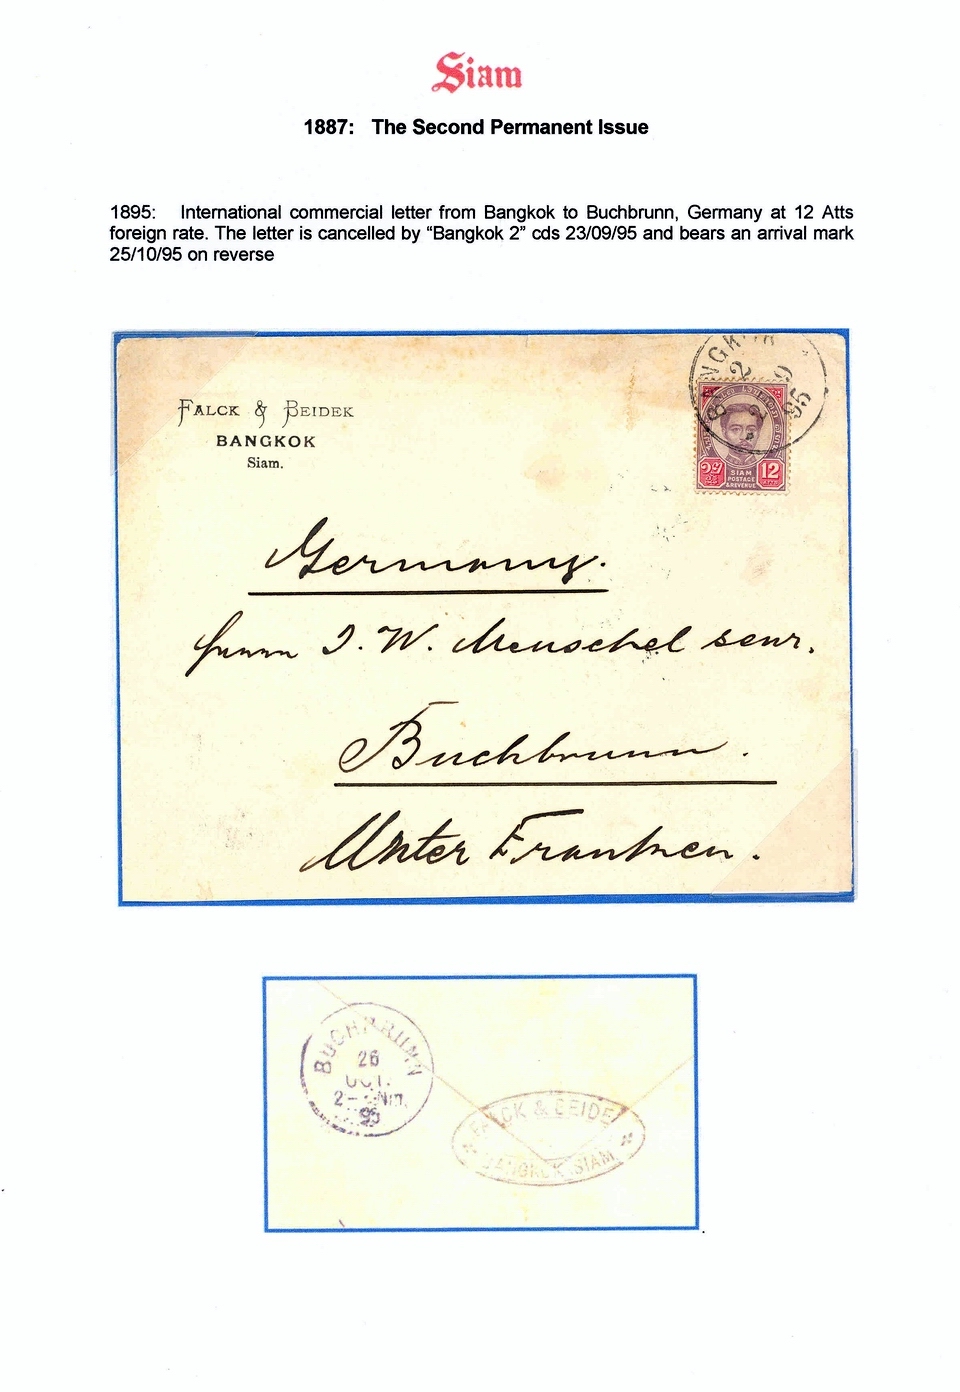 Siam
1887: The Second Permanent Issue
1895: International commercial letter from Bangkok to Buchbrunn, Germany at 12 Atts
foreign rate. The letter is cancelled by “Bangkok 2” cds 23/09/95 and bears an arrival mark
25/10/95 on reverse
FALCK & BEIDEK
BANGKOK
Siam.
2
95
12
SIAM
POSTAGE
& REVENUE
Germany.
Herrn J. W. Meuschel senr.
Buchbrunn.
Unter Franken.
BUCHBRUNN
26
OCT.
95
FALCK & BEIDEK
BANGKOK SIAM